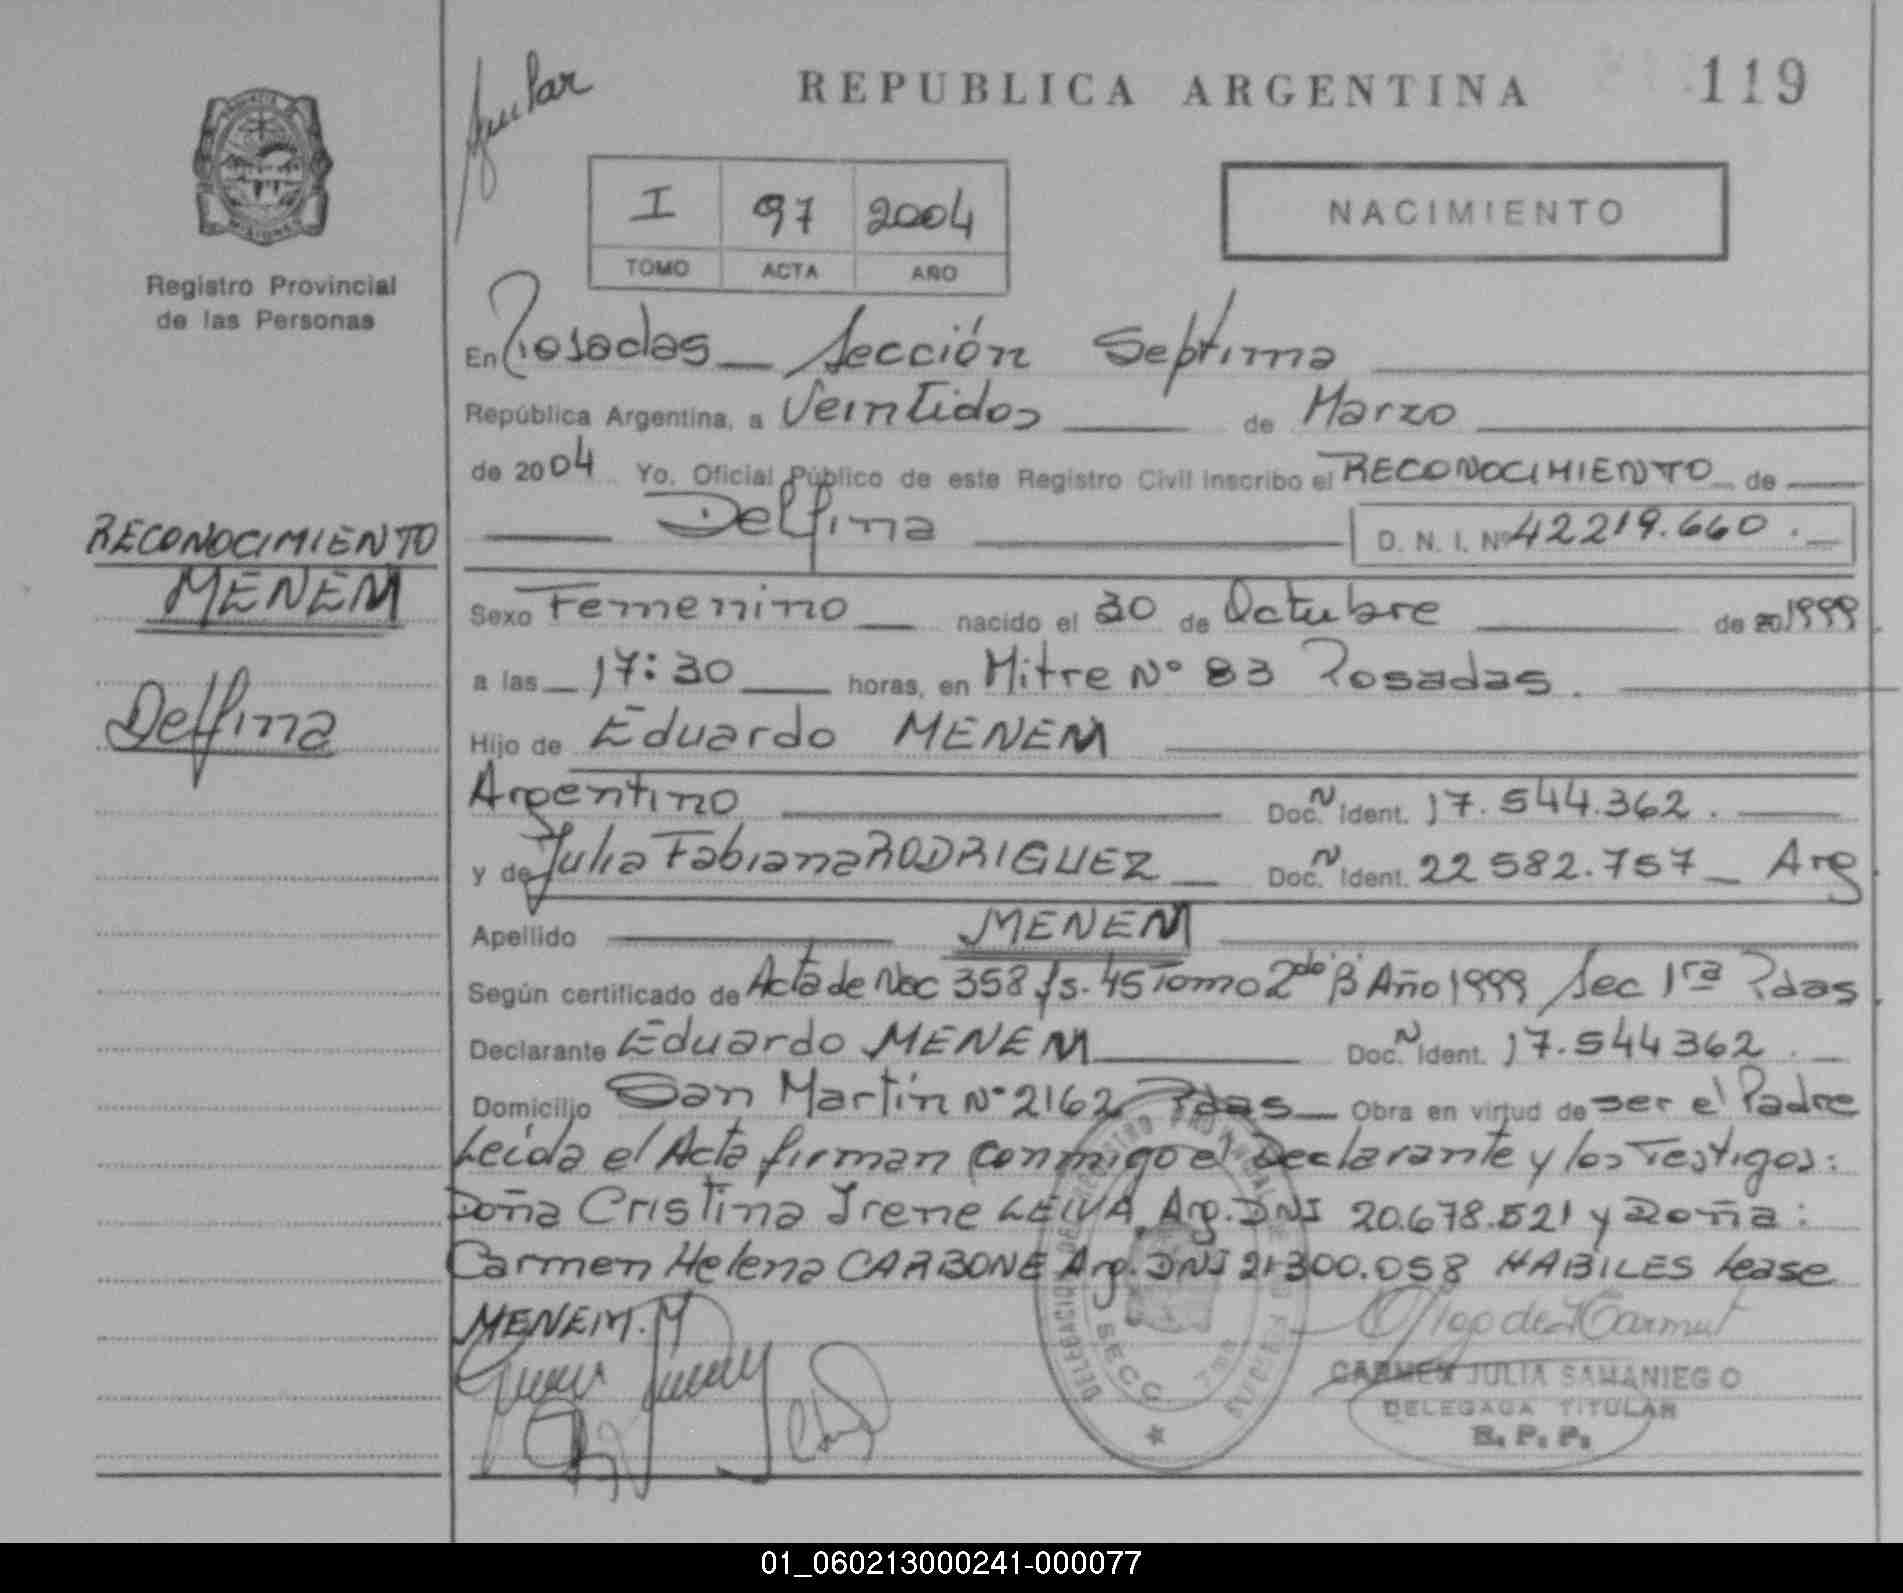 REPUBLICA ARGENTINA
119
I 97 2004
TOMO ACTA AÑO
NACIMIENTO
Registro Provincial
de las Personas
En Posadas Sección Septima
República Argentina, a Veintidos de Marzo
de 2004 Yo, Oficial Público de este Registro Civil inscribo el RECONOCIMIENTO de
Delfina D. N. I. Nº 42219.660.
RECONOCIMIENTO
MENEM
Delfina
Sexo Femenino nacido el 30 de Octubre de 20 1999
a las 17:30 horas, en Mitre Nº 83 Posadas.
Hijo de Eduardo MENEM
Argentino Doc. N Ident. 17.544.362.
y de Julia Fabiana RODRIGUEZ Doc. N Ident. 22 582.757 Arg
Apellido MENEM
Según certificado de Acta de Nac 358 fs. 45 Tomo 2do "B" Año 1999 Sec 1ra Pdas
Declarante Eduardo MENEM Doc. N Ident. 17.544 362.
Domicilio San Martín Nº 2162 Pdas Obra en virtud de ser el Padre
Leída el Acta firman conmigo el Declarante y los Testigos:
Doña Cristina Irene LEIVA Arg. DNI 20.678.521 y Doña:
Carmen Helena CARBONE Arg. DNI 21300.058 HABILES Lease
MENEM.
SECC
CARMEN JULIA SAMANIEGO
DELEGADA TITULAR
R. P. P.
01_060213000241-000077